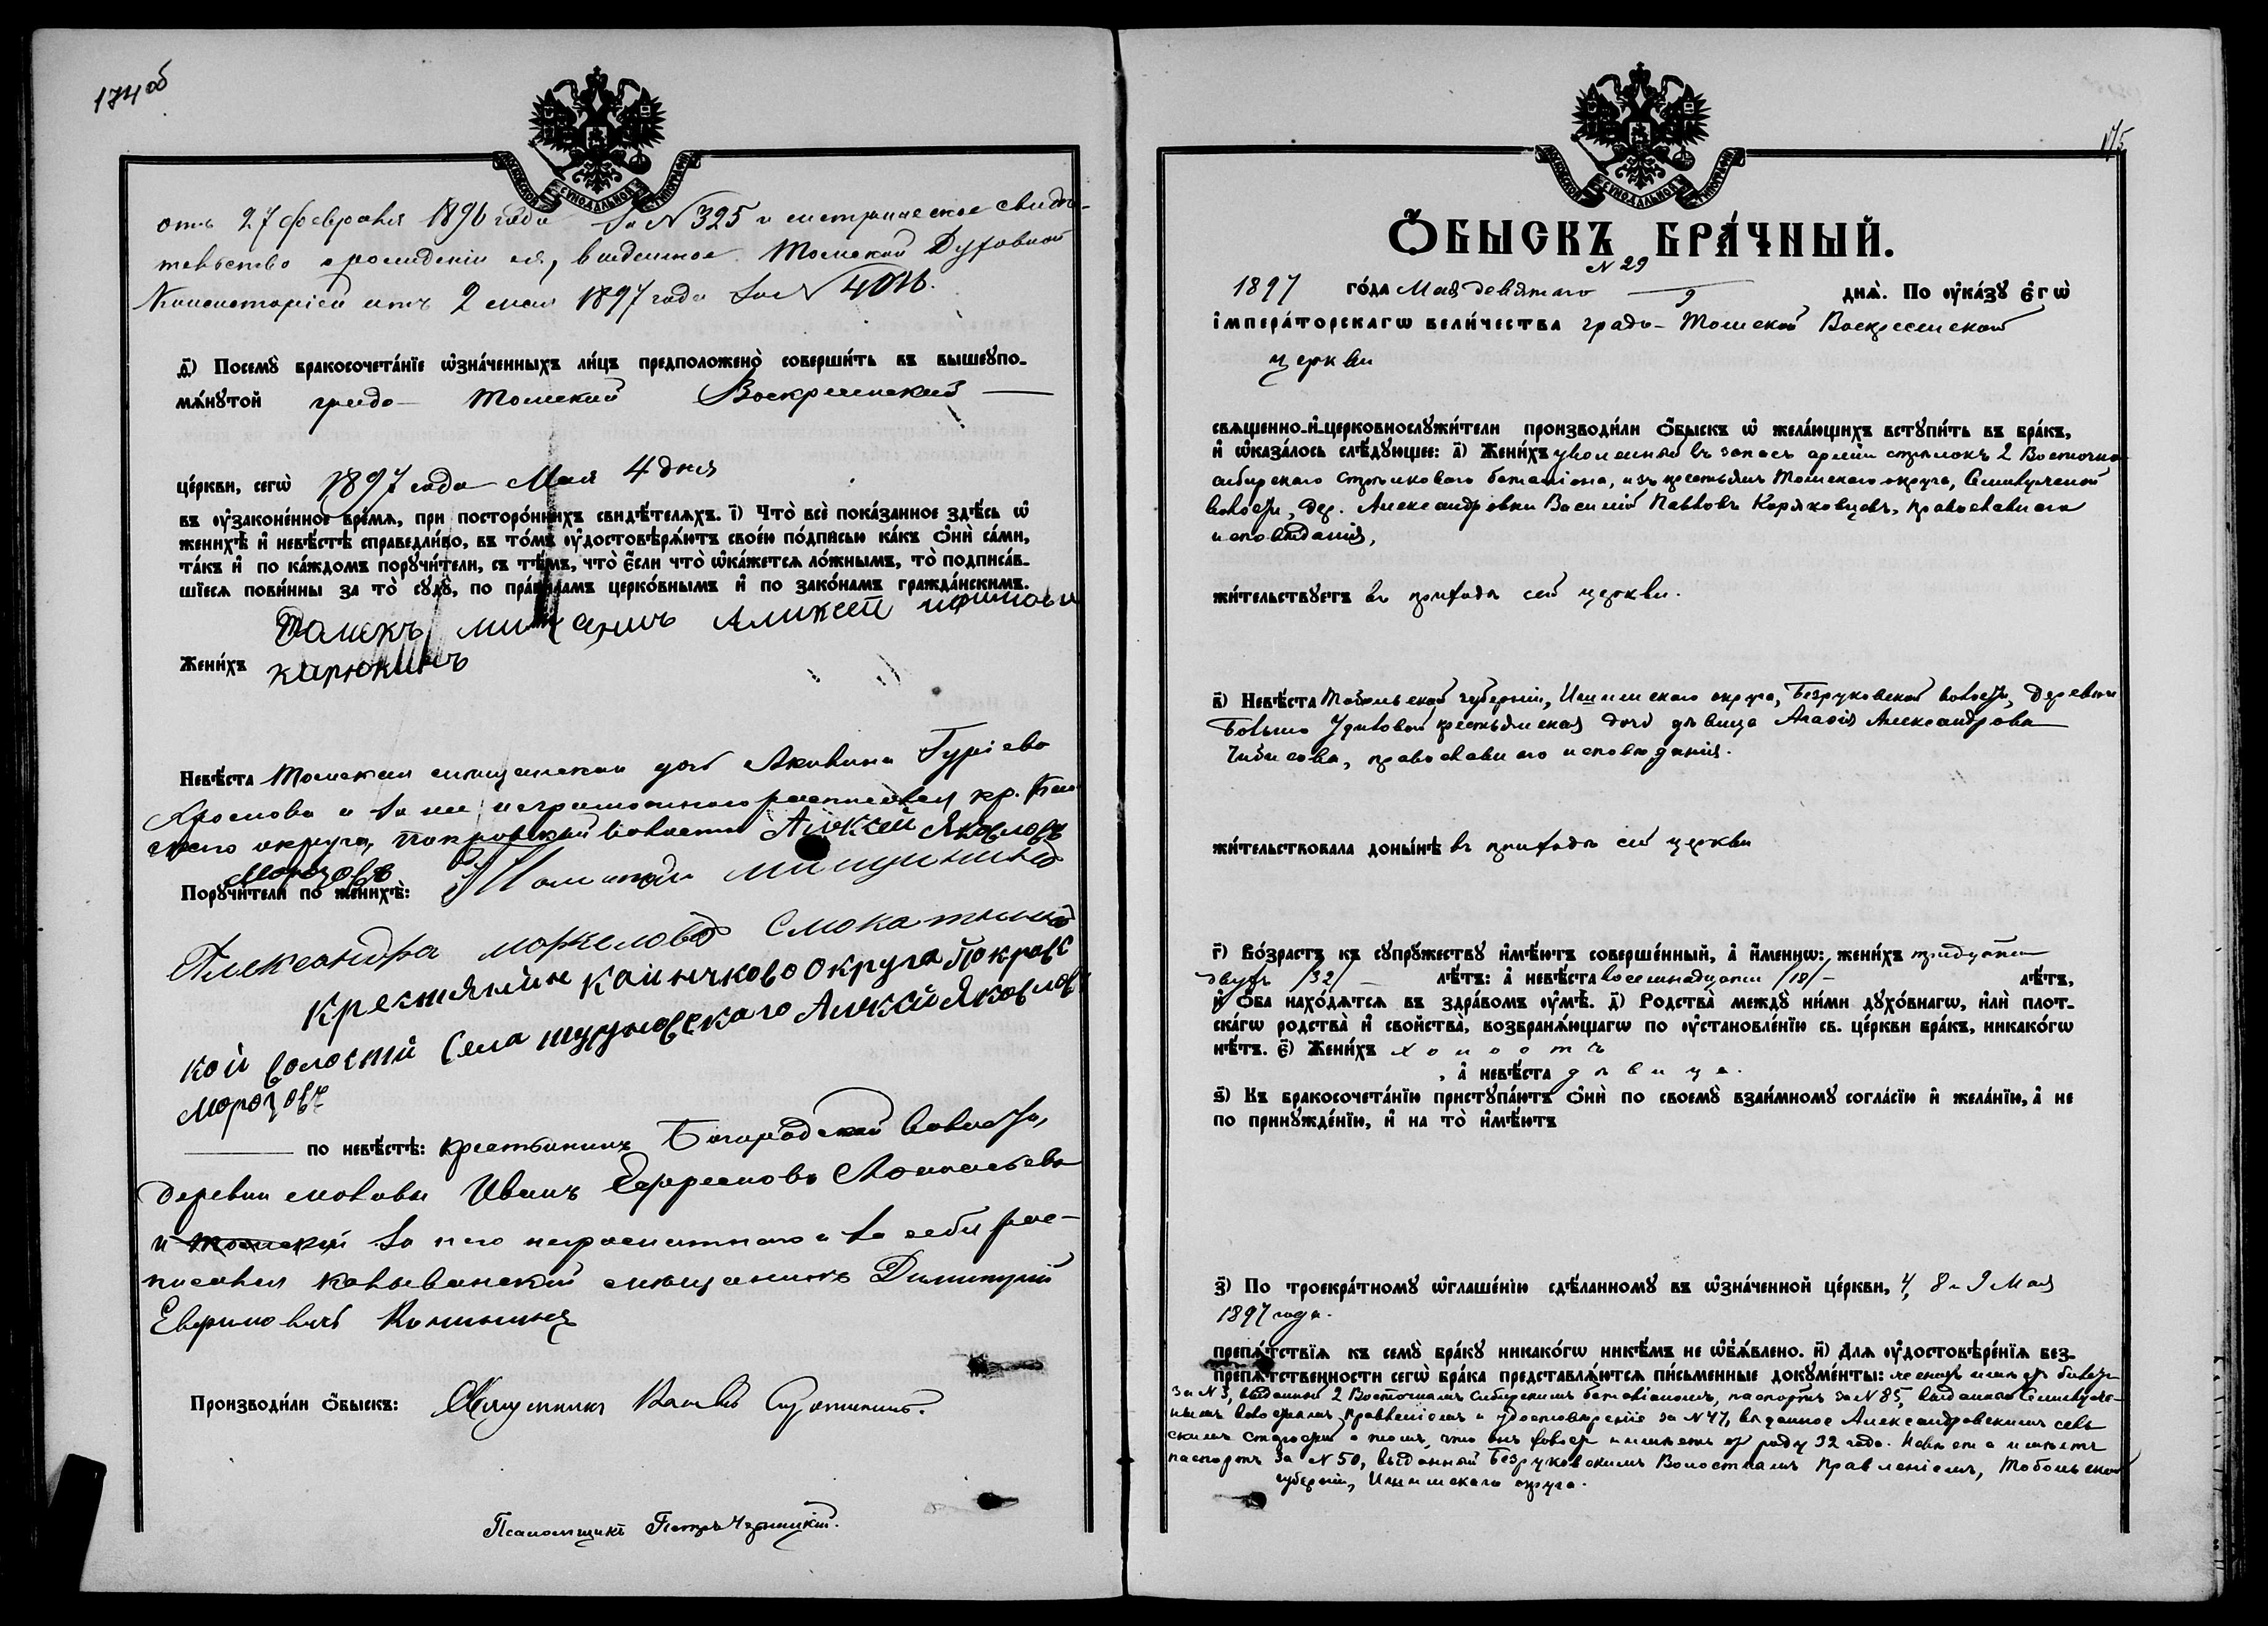 174об
МОСКОВСКОЙ СѴНОДАЛЬНОЙ ТИПОГРАФІИ
отъ 27 февраля 1896 года за № 325 и метрическое свидѣ-
тельство о рожденіи ея, выданное Томской Духовной
Консисторіей отъ 2 мая 1897 года за №
д҃) Посемꙋ̀ бракосочета́нїе ѡ҆зна́ченныхъ ли́цъ предположено̀ соверши́ть въ вышеꙋпо-
мѧ́нꙋтой градо- Томской Воскресенской
це́ркви, сегѡ̀ 1897 года Мая 4 дня
въ ᲂу҆зако́нное вре́мѧ, при посторо́ннихъ свидѣ́телѧхъ. і҃) Что̀ всѐ пока́занное здѣ́сь ѡ҆
женихѣ̀ и҆ невѣ́стѣ справедли́во, въ то́мъ ᲂу҆достовѣрѧ́ютъ свое́ю по́дписью ка́къ ѻ҆нѝ са́ми,
та́къ и҆ по ка́ждомъ порꙋчи́тели, съ тѣ́мъ, что̀ є҆́сли что̀ ѡ҆ка́жетсѧ ло́жнымъ, то̀ подписа́в-
шїесѧ пови́нны за то̀ сꙋдꙋ̀, по пра́виламъ церко́внымъ и҆ по зако́намъ гражда́нскимъ.
Томскъ мищенинъ Аликсей
Жени́хъ карюкинъ
Невѣ́ста Томская мѣщанская дочь Акилина Гуріева
и за не неграмотную росписался кр. Каин-
скаго округа, Покровской волости Алексей Яковловъ
Морозовъ
Порꙋчи́тели по женихѣ̀: Томскай мищининъ
Александра моркеловъ Смокатинъ
Крестянинъ Каинчково Округа Покровс
кой волости Села Алексй Яковлевъ
Морозовъ
по невѣ́стѣ: крестьянинъ Богородской волости,
деревни Иванъ Ефремовъ
и Томский За него неграмотнаго и за себя рос-
писался колыванский мѣщанинъ Димитрий
Производи́ли ѻ҆́быскъ: Священникъ
Псаломщикъ Петръ
175
МОСКОВСКОЙ СѴНОДАЛЬНОЙ ТИПОГРАФІИ
Ѻ҆́БЫСКЪ БРА́ЧНЫЙ.
№ 29
1897 го́да Мая девятаго 9 днѧ̀. По ᲂу҆ка́зꙋ є҆гѡ̀
і҆мпера́торскагѡ вели́чества градо-Томской Воскресенской
церкви
свѧще́нно-и҆-церковнослꙋжи́тели производи́ли ѻ҆́быскъ ѡ҆ жела́ющихъ встꙋпи́ть въ бра́къ,
и҆ ѡ҆каза́лось слѣ́дꙋющее: а҃) Жени́хъ уволенный въ запасъ арміи стрѣлокъ 2 Восточно-
сибирскаго стрѣлковаго баталіона, изъ крестьянъ Томскаго округа, Семилужной
волости, дер. Александровки Василій Павловъ Коряковцевъ, православнаго
исповѣданія,
жи́тельствꙋетъ въ приходѣ сей церкви.
в҃) Невѣ́ста Тобольской губерніи, Ишимскаго округа, Безруковской волости, деревни
Больше Удиловой крестьянская дочь дѣвица Агафія Александрова
Чибисова, православнаго исповѣданія.
жи́тельствовала доны́нѣ въ приходѣ сей церкви
г҃) Во́зрастъ къ сꙋпрꙋ́жествꙋ и҆мѣ́ютъ соверше́нный, а҆ и҆́меннѡ: жени́хъ тридцати
двухъ /32/ лѣ́тъ: а҆ невѣ́ста восемнадцати /18/ лѣ́тъ,
и҆ ѻ҆́ба нахо́дѧтсѧ въ здра́вомъ ᲂу҆мѣ̀. д҃) Родства̀ междꙋ̀ ни́ми дꙋхо́внагѡ, и҆лѝ плот-
ска́гѡ родства̀ и҆ свойства̀, возбранѧ́ющагѡ по ᲂу҆становле́нїю св. це́ркви бра́къ, никако́гѡ
нѣ́тъ. є҃) Жени́хъ холостъ
, а҆ невѣ́ста дѣвица.
ѕ҃) Къ бракосочета́нїю пристꙋпа́ютъ ѻ҆нѝ по своемꙋ̀ взаи́мномꙋ согла́сїю и҆ жела́нїю, а҆ не
по принꙋжде́нїю, и҆ на то̀ и҆мѣ́ютъ
з҃) По троекра́тномꙋ ѡ҆глаше́нїю сдѣ́ланномꙋ въ ѡ҆зна́ченной це́ркви, 4, 8 и 9 Мая
1897 года.
препѧ́тствїѧ къ семꙋ̀ бра́кꙋ никако́гѡ никѣ́мъ не ѡ҆б̾ѧ́влено. и҃) Длѧ ᲂу҆достовѣре́нїѧ без-
препѧ́тственности сегѡ̀ бра́ка представлѧ́ютсѧ пи́сьменные докꙋме́нты: женихъ имѣетъ билетъ
за № 3, выданный 2 Восточнымъ Сибирскимъ баталіономъ, паспортъ за № 85, выданный Семилуж-
нымъ волостнымъ правленіемъ и удостовѣреніе за № 47, выданное Александровскимъ сель
скимъ старостой о томъ, что онъ холостъ и имѣетъ отъ роду 32 года. Невѣста имѣетъ
паспортъ за № 50, выданный Безруковскимъ Волостнымъ правленіемъ, Тобольской
губерніи, Ишимскаго округа.